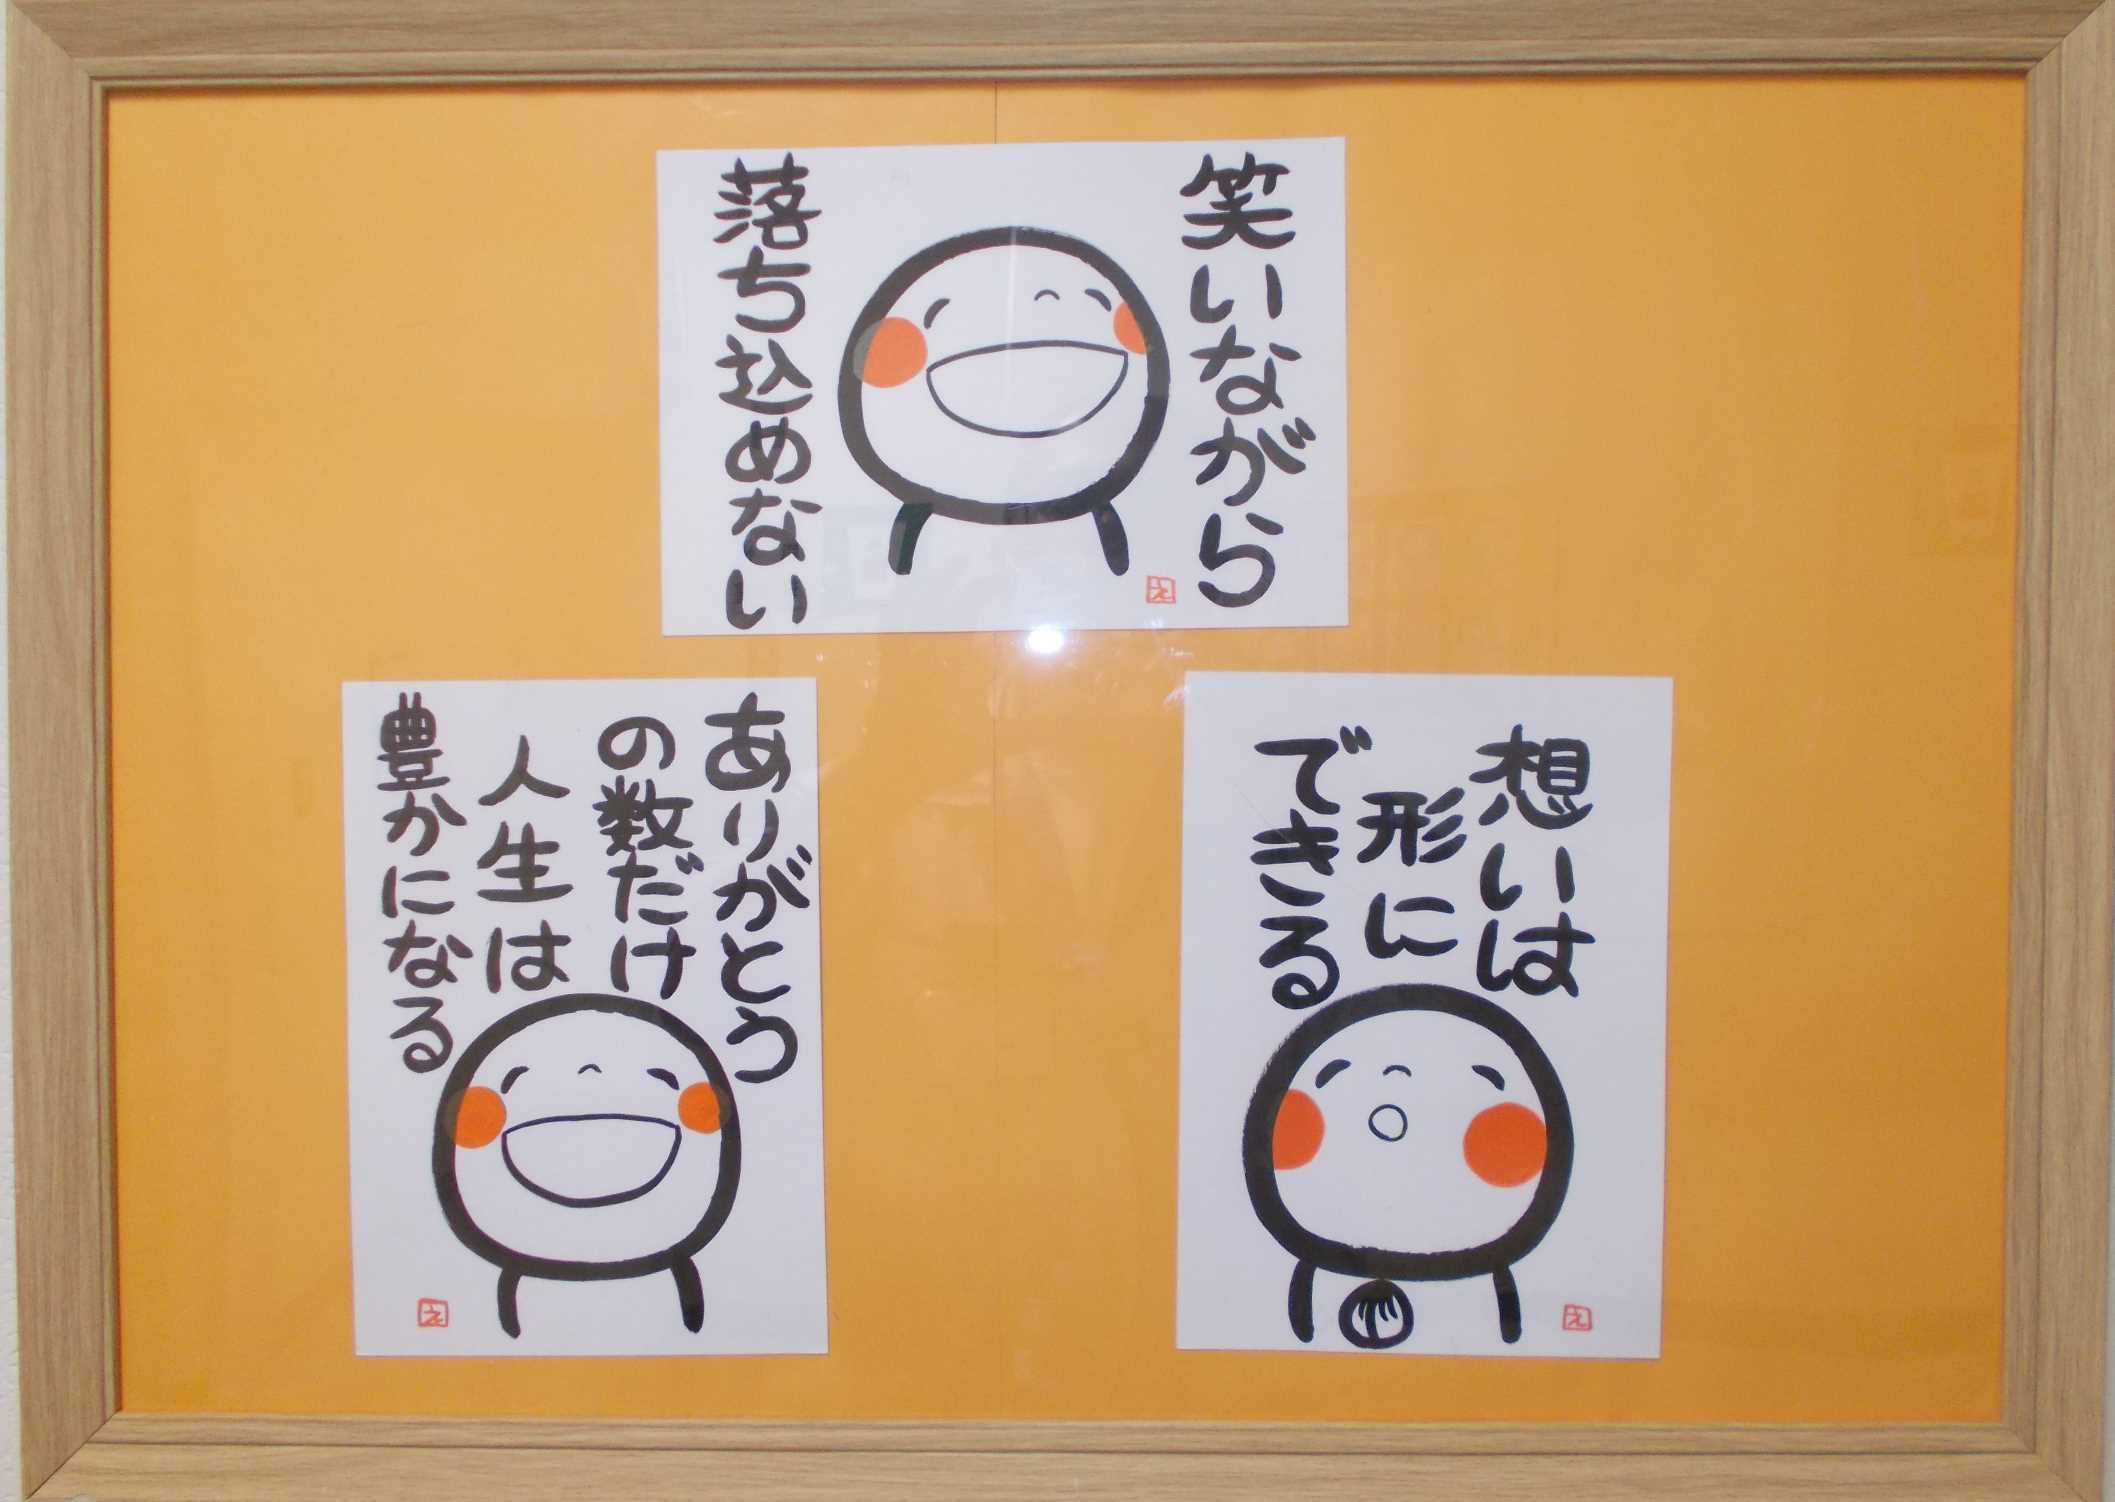 笑いながら
落ち込めない
え
ありがとう
の数だけ
人生は
豊かになる
え
想いは
形に
できる
え